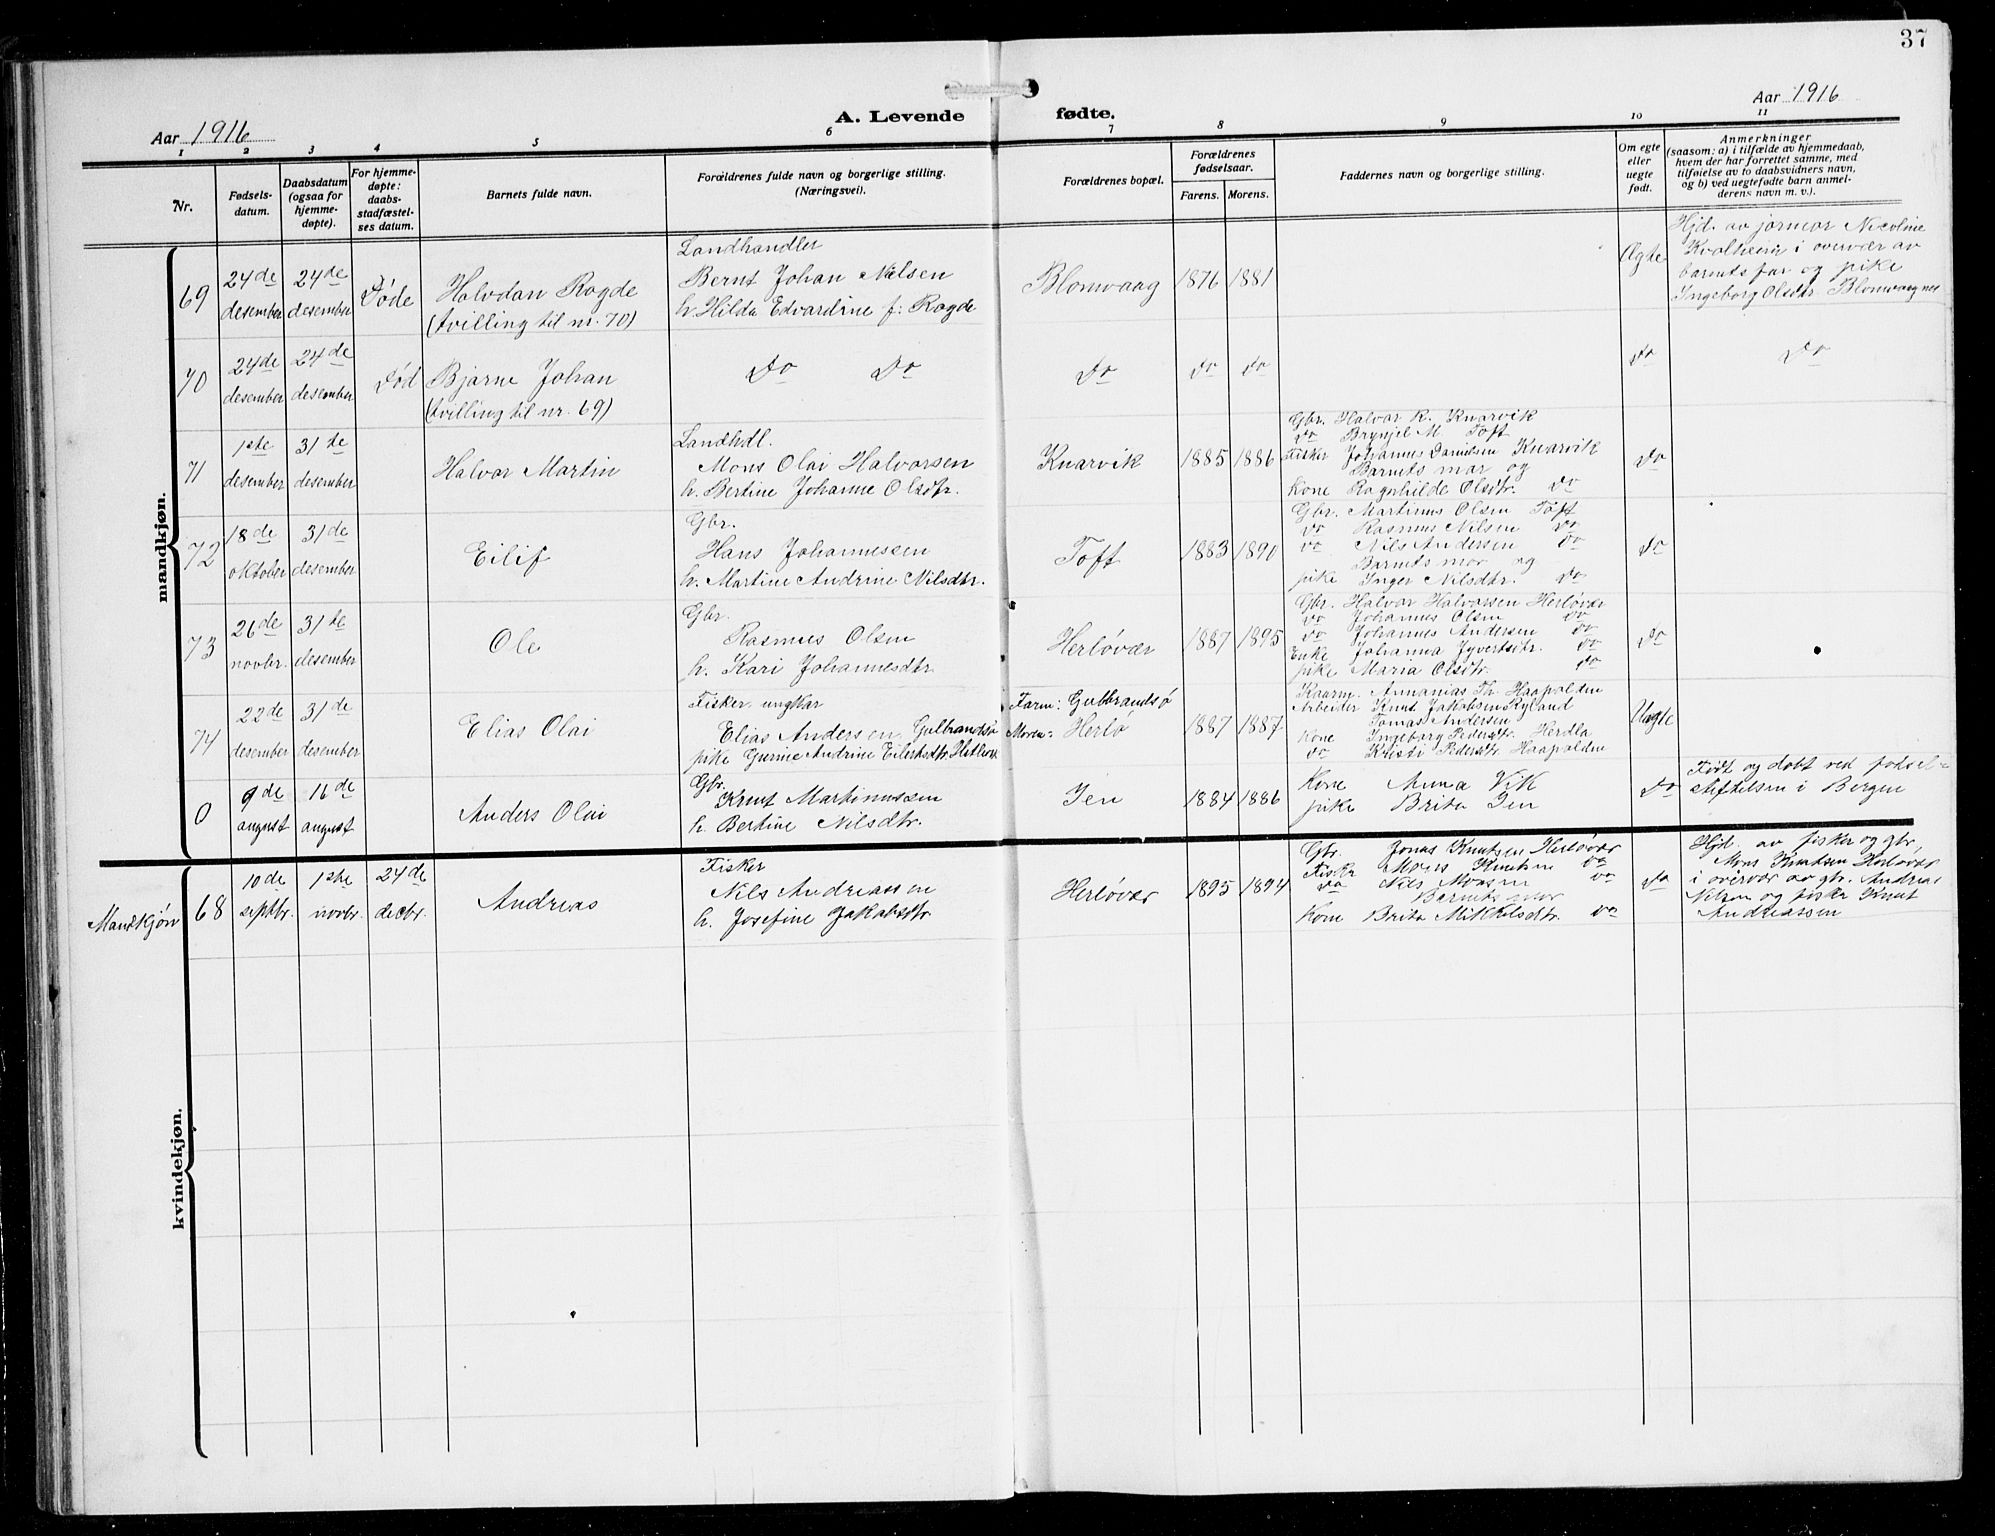 37
Aar 1916
A. Levende fødte.
Aar 1916
1 2 3 4 5 6 7 8 9 10 11
Nr.
Fødsels-
datum.
Daabsdatum
(ogsaa for
hjemme-
døpte).
For hjemme-
døpte:
daabs-
stadfæstel-
ses datum.
Barnets fulde navn.
Forældrenes fulde navn og borgerlige stilling.
(Næringsvei).
Forældrenes bopæl.
Forældrenes
fødselsaar.
Farens. Morens.
Faddernes navn og borgerlige stilling.
Om egte
eller
uegte
født.
Anmerkninger
(saasom: a) i tilfælde av hjemmedaab,
hvem der har forrettet samme, med
tilføielse av to daabsvidners navn,
og b) ved uegtefødte barn anmel-
derens navn m. v.).
mandkjøn.
69
24de
desember
24de
desember
Døde
Halvdan Rogde
(tvilling til nr. 70)
Landhandler
Bernt Johan Nilsen
h. Hilda Edvardine f: Rogde
Blomvaag
1876 1881
Ægte
Hjd. av jormor Nicoline
Kvalheim i overvær av
barnets far og pike
Ingeborg Olsdtr. Blomvaagnes
70
24de
desember
24de
desember
Død
Bjarne Johan
(tvilling til nr. 69)
Do Do
Do
do do
do
Do
71
1ste
desember
31te
desember
Halvor Martin
Landhdl.
Mons Olai Halvorsen
h. Bertine Johanne Olsdtr.
Knarvik
1885 1886
Gbr. Halvar R. Knarvik
do Brynjel M. Toft
Fisker Johannes Danielsen Knarvik
Barnets mor og
Kone Ragnhilde Olsdtr. do
do
72
18de
oktober
31de
desember
Eilif
Gbr.
Hans Johannessen
h. Martine Andrine Nilsdtr.
Toft
1883 1890
Gbr. Martinus Olsen Toft
do Rasmus Nilsen do
do Nils Andersen do
Barnets mor og
pike Inger Nilsdtr. do
do
73
26de
novbr.
31te
desember
Ole
Gbr.
Rasmus Olsen
h. Kari Johannesdtr
Herløvær
1887 1895
Gbr. Halvar Halvorsen Herløvær
do Johannes Olsen do
do Johannes Andersen do
Enke Johanna Jyvertsdtr. do
pike Maria Olsdtr. do
do
74
22de
desember
31de
desember
Elias Olai
Fisker, ungkar
Elias Andersen Gulbrandsø
pike Gurine Andrine Eileksdtr.
Farm: Gulbrandsø
Moren: Herlø
1887 1887
Kaarm. Annanias Th. Haapolden
Arbeider Knut Jakobsen
Tomas Andersen
Kone Ingeborg Pedersdtr. Herdla
do Kristi Pedersdtr. Haapolden
Uægte
0
9de
august
16de
august
Anders Olai
Gbr.
Knut Martinussen
h. Bertine Nilsdtr.
Jen
1884 1886
Kone Anna Vik
pike Brita Jen
do
Født og døbt ved fødsel-
stiftelsen i Bergen
kvindekjøn.
Mandkjøn
68
10de
septbr.
1ste
novbr.
24de
decbr.
Andreas
Fisker
Nils Andreassen
h. Josefine Jakobsdtr
Herløvær
1895 1894
Gbr. Jonas Knutsen Herløvær
Fisker Mons Knutsen do
do Nils Monsen do
Barnets mor
Kone Brita Mikkelsdtr. do
do
Hjd. av fisker og gbr,
Mons Knutsen Herløvær
i overvær av gbr. Andreas
Nilsen og fisker Knut
Andreassen